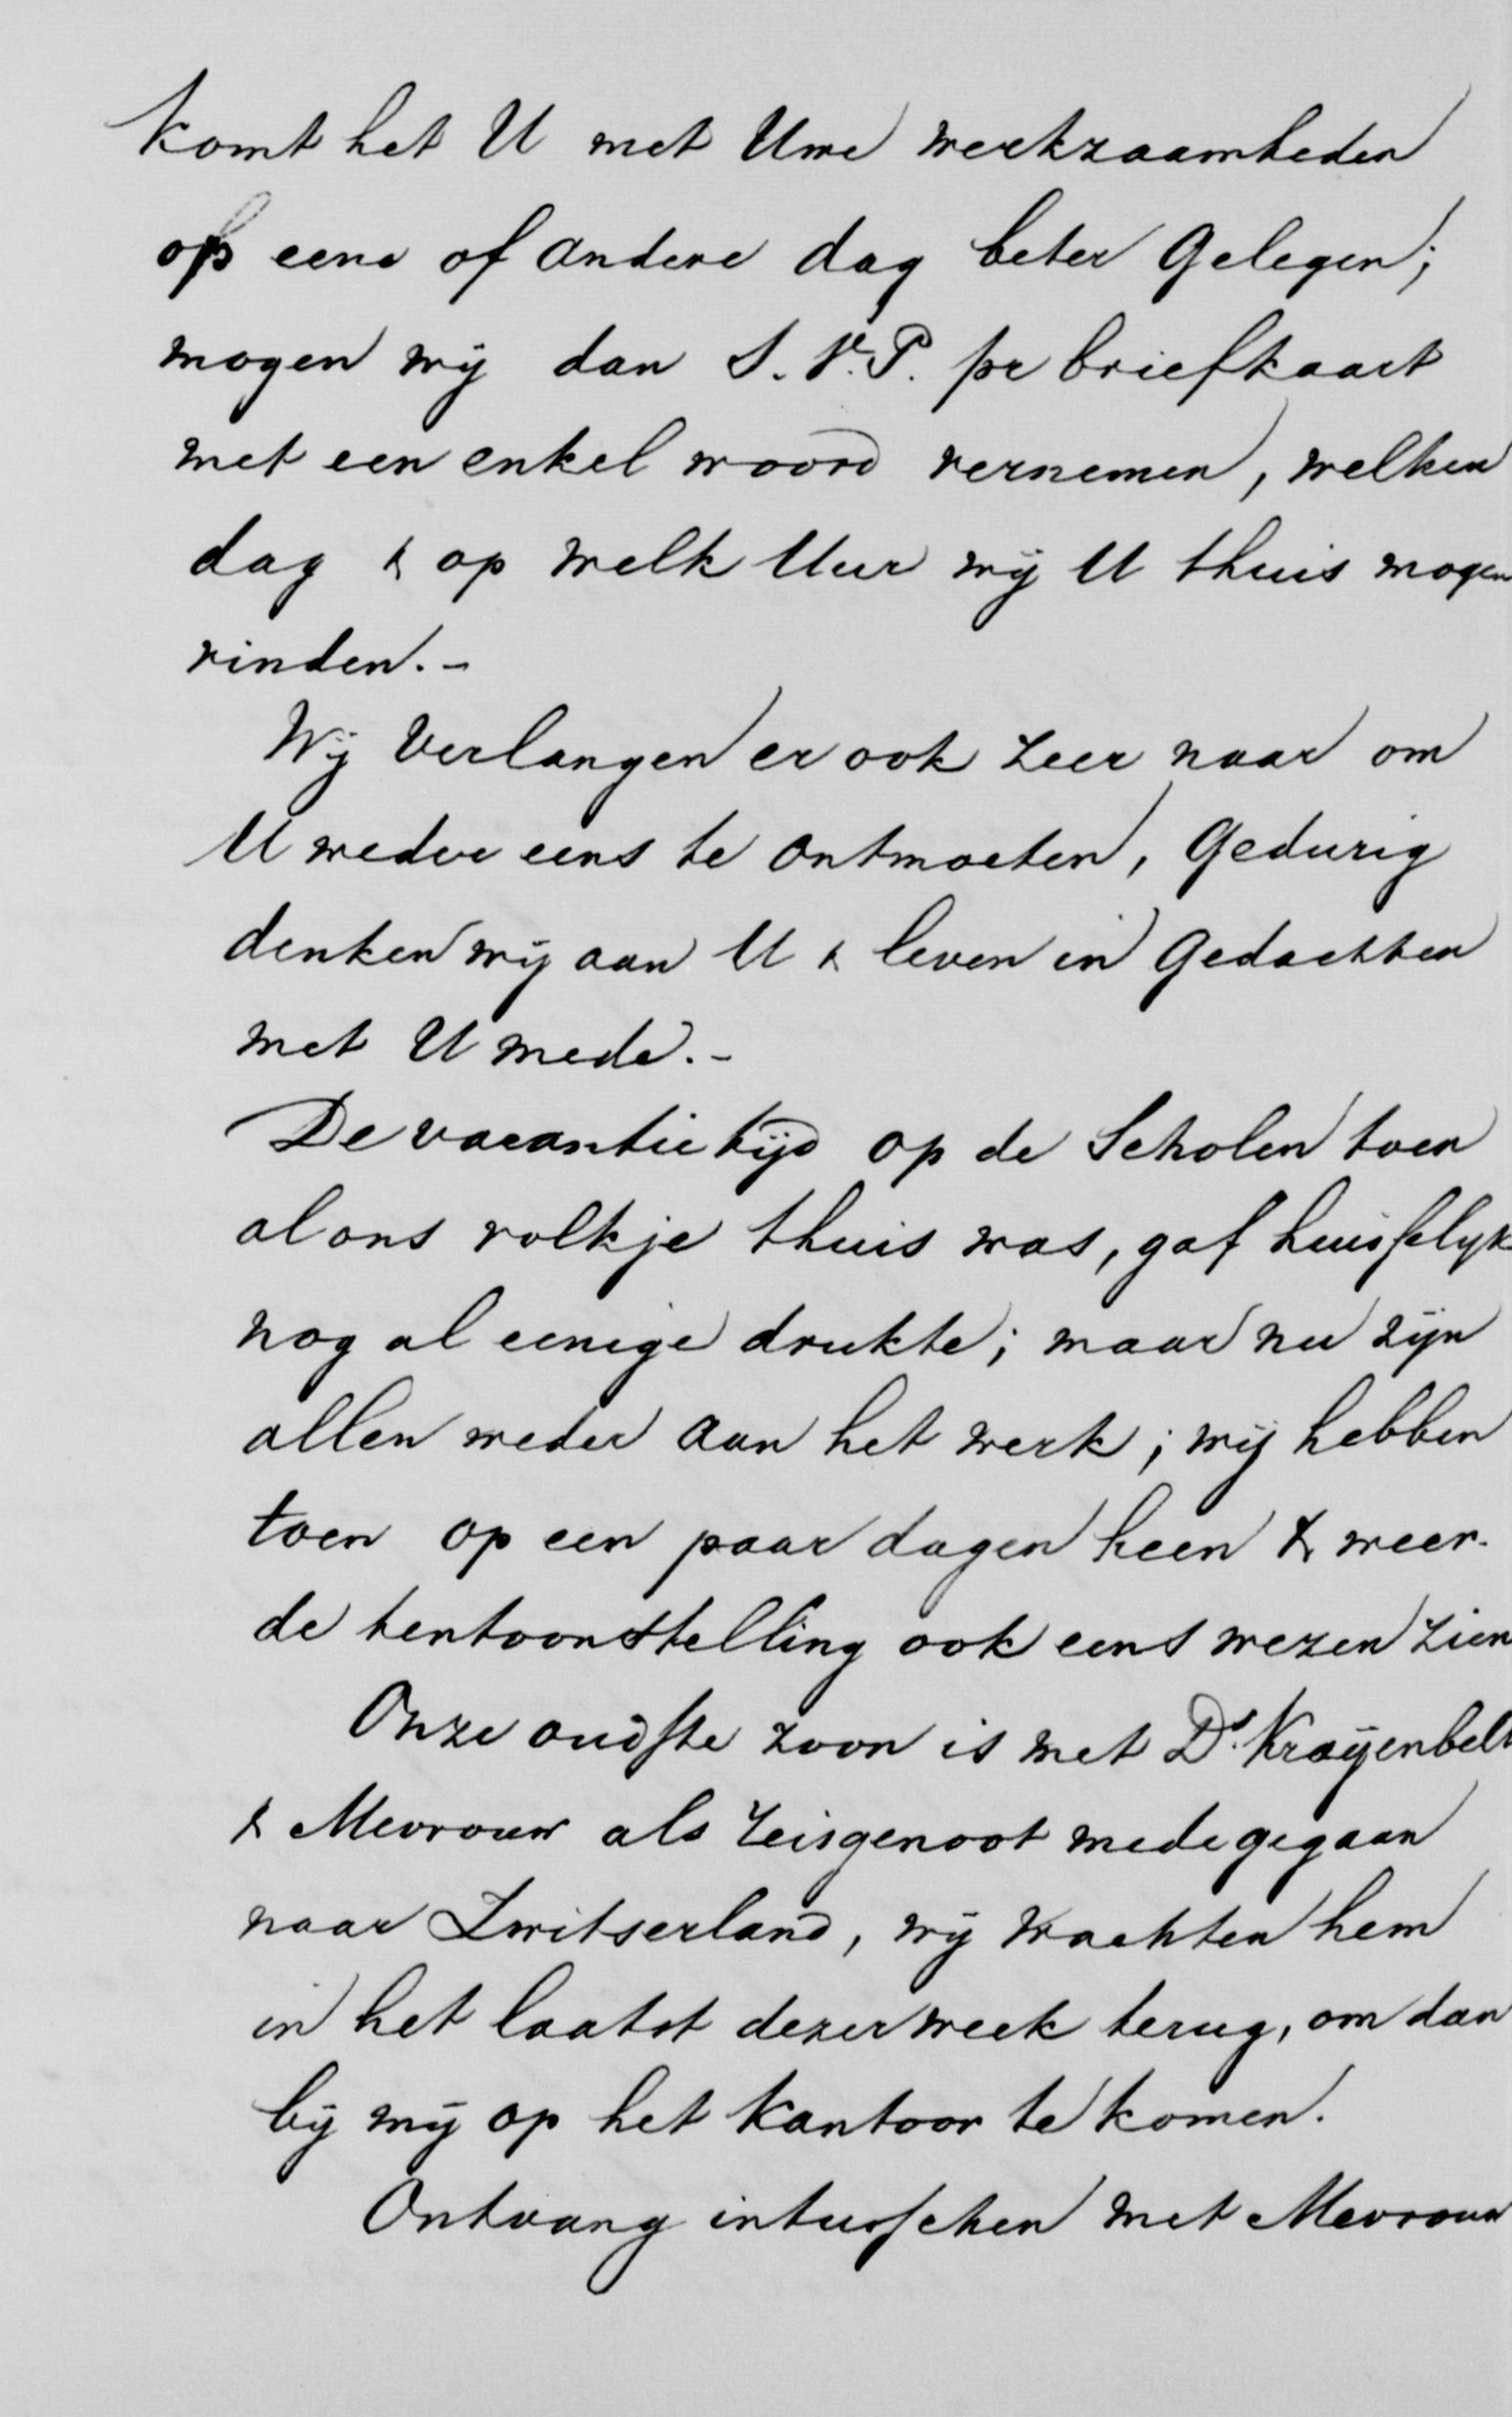 komt het U met Uwe werkzaamheden
op eene of andere dag beter Gelegen;
mogen wij dan S.V.P. pr briefkaart
met een enkel woord vernemen, welken
dag & op welk Uur wij U thuis mogen
vinden.-
Wij Verlangen er ook zeer naar om
U weder eens te ontmoeten, Gedurig
denken wij aan U & leven in Gedachten
met U mede.-
De vacantie tijd op de Scholen toen
al ons volkje thuis was, gaf huisselyk
nog al eenige drukte; maar nu zijn
allen weder aan het werk; wij hebben
toen op een paar dagen heen & weer-
de tentoonstelling ook eens wezen zien
Onze oudste zoon is met Ds. Kraijenbelt
& Mevrouw als reisgenoot mede gegaan
naar Zwitserland, wij wachten hem
in het laatst dezer week terug, om dan
bij mij op het Kantoor te komen.
Ontvang intusschen met Mevrouw